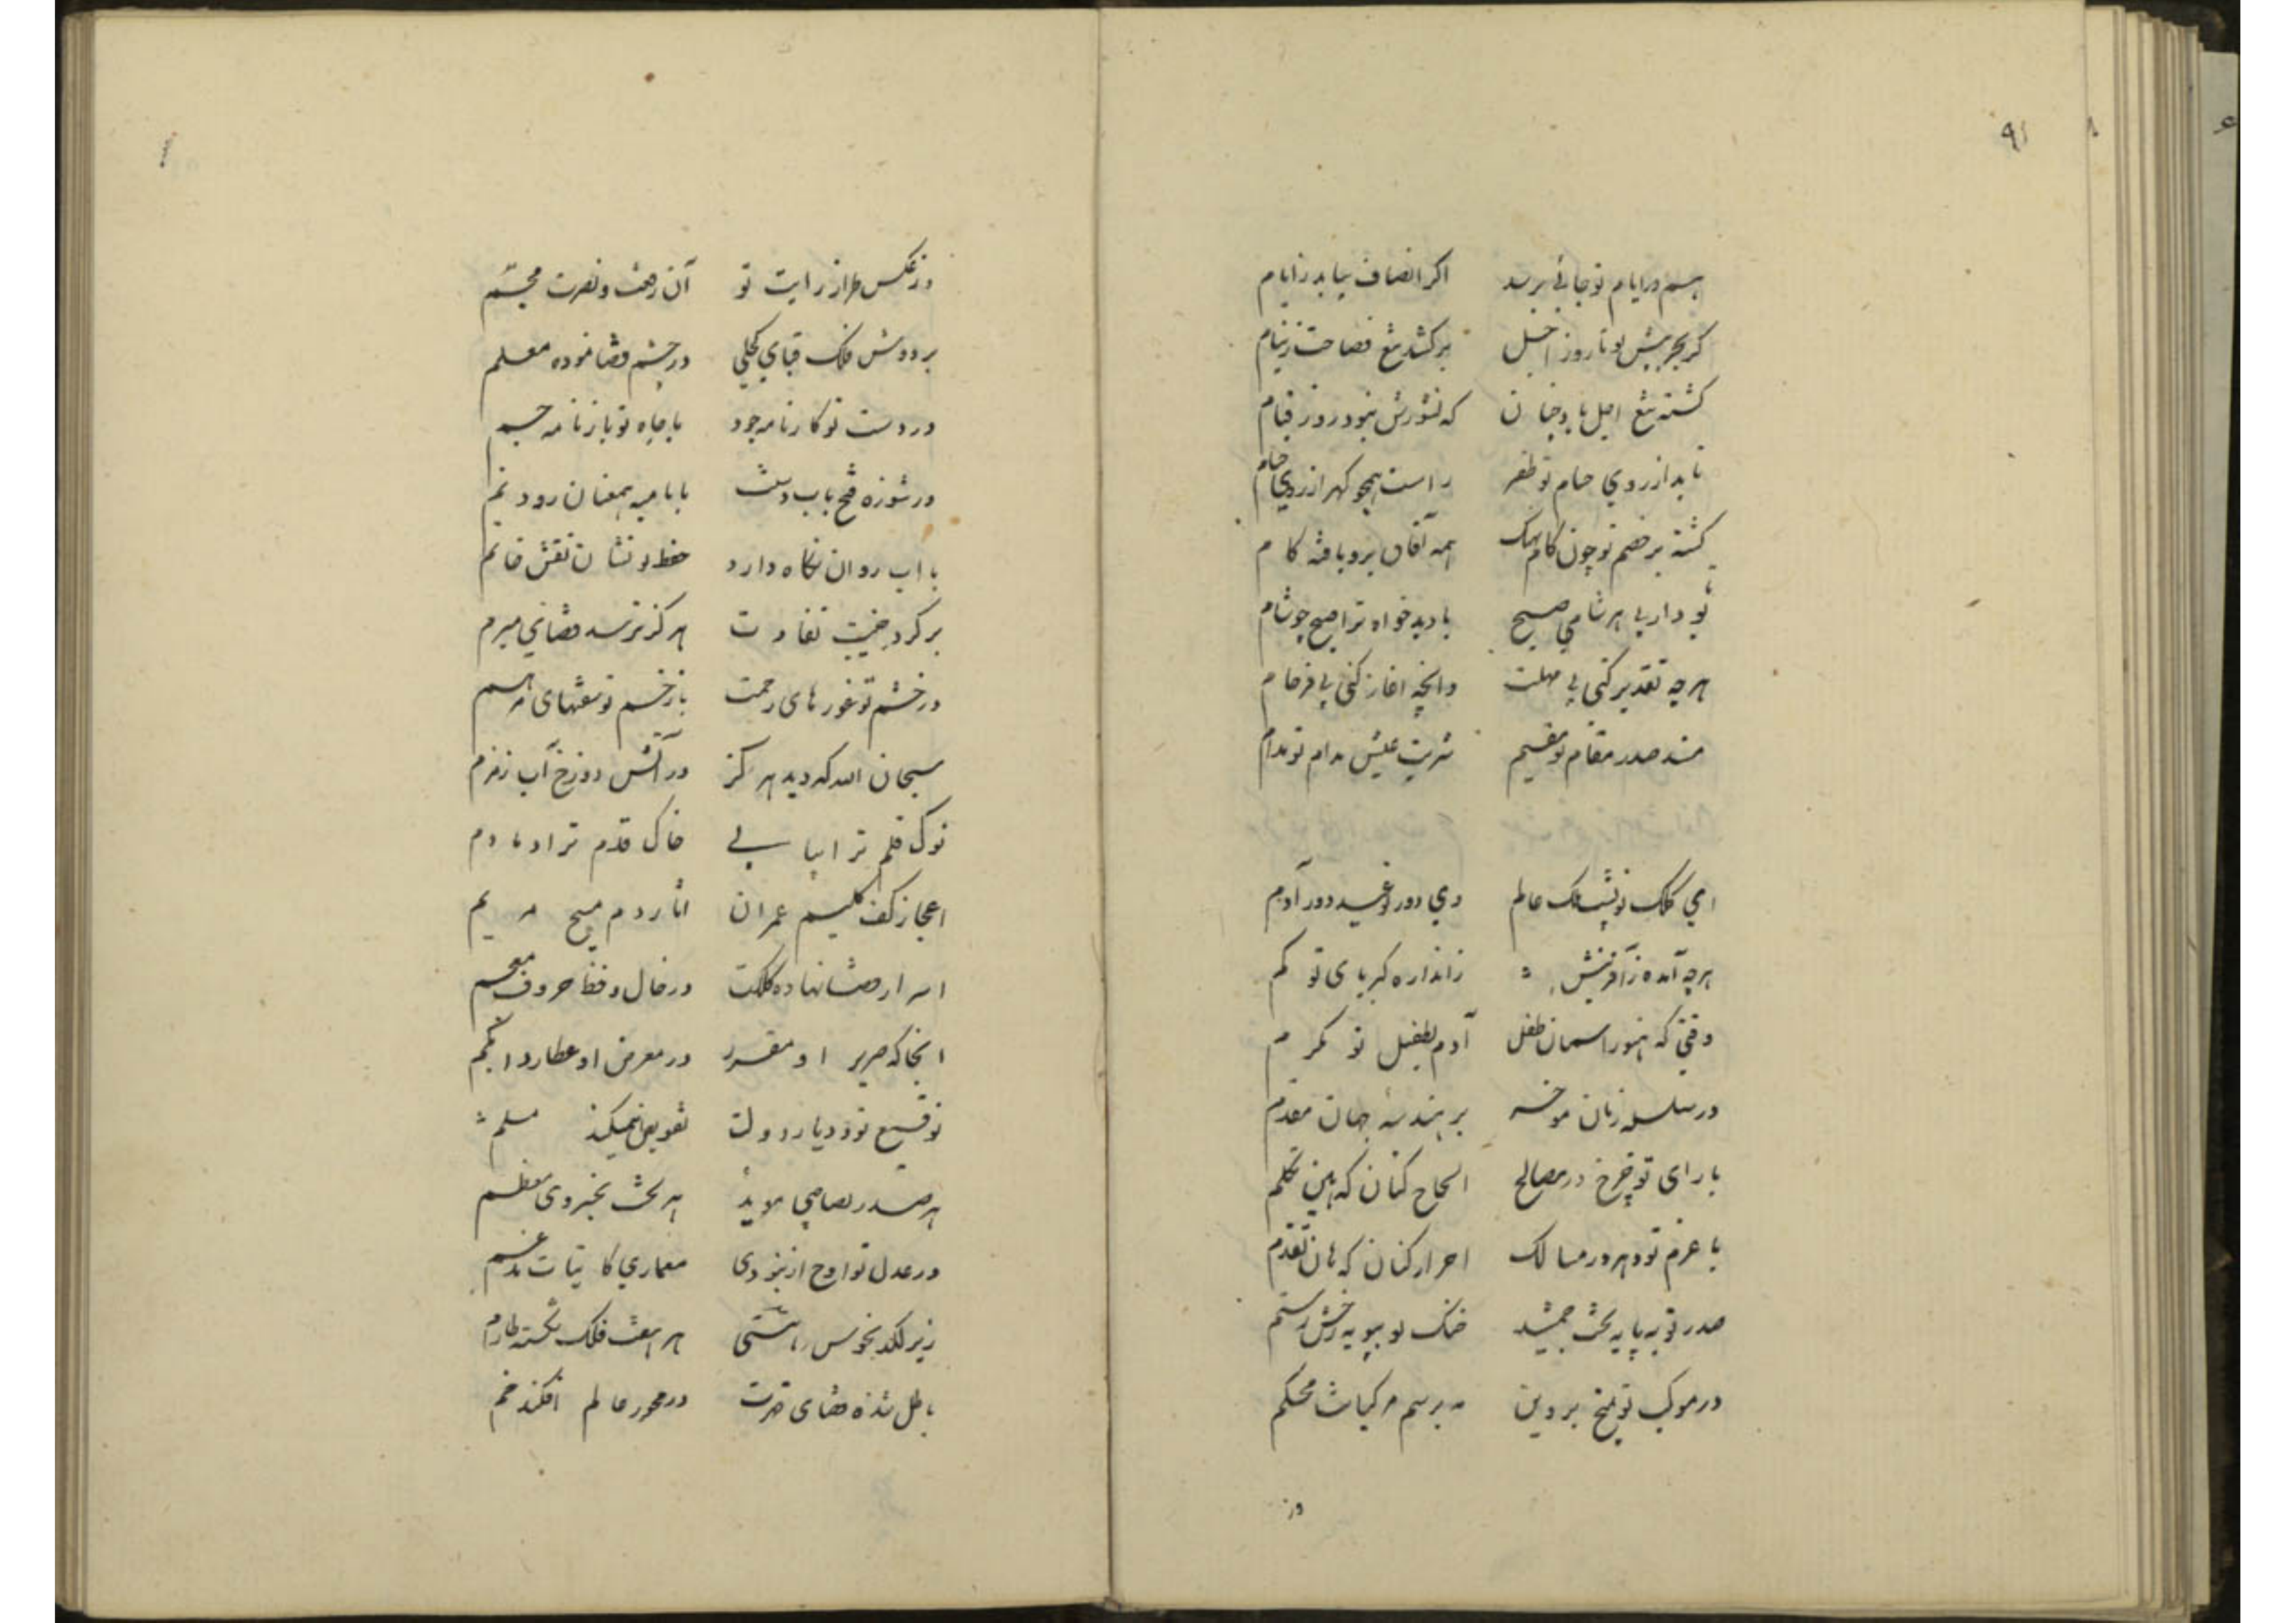 ۹۱
هم در ایام تو جائی برسد اکر انصاف بیابد ز ایام
کر بجر پیش تو تا روز اجل برکشد تیغ فصاحت ز نیام
کشته تیغ اجل باد چنان که نشورش نبود روز قیام
تا بد از روی حسام تو ظفر راست همچو کهر از روی حسام
کشته بر خصم تو چون کام نهنک همه آفاق و نا یافته کام
تو و داریی هر شامی صبح با دبدخواه ترا صبح چو شام
هرچه تقدیر کنی بی مهلت وانچه اغاز کنی بی فرجام
مسند صدر مقام تو مقیم شربت عیش مدام تو مدام
ای کلک تو پشت ملک عالم وی دور تو عید دور آدم
هرچه آمده ز آفرینش ز اندازه کبریای تو کم
وقتی که هنوز اسمان طفل آدم بطفیل تو مکرم
در سلسله زمان موخر بر هندسه جهان مقدم
با رای تو چرخ در مصالح الحاح کنان که هین تکلم
با عزم تو دهر در مسالک احرار کنان که هان تقدم
صدر تو به پایه تخت جمشید خنک تو بپویه رخش رستم
در موکب تو میخ پروین بر سم مرکبات محکم
وز
وز عکس طراز رایت تو آن رحمت و نصرت مجسم
بر دوش فلک قبای کحلی در چشم قضا نموده معلم
در دست تو کارنامه جود با جاه تو بازنامه جسم
در شوره فتح باب دستت با نامیه همعنان رود نم
با اب روان نکاه دارد حفظ تو نشان نقش خاتم
بر کرد جنیبت نفاذت هرکز نرسد قضای مبرم
در خشم تو غورهای رحمت با زخم تو نعمتهای مرهم
سبحان الله که دید هرکز در آتش دوزخ آب زمزم
نوک قلم ترا پیاپی خاک قدم ترا دمادم
اعجاز کف کلیم عمران اثار دم مسیح مریم
اسرار قضا نهاده کلکت در خال و خط حروف معجم
انجا که صریر او مقرر در معرض او عطارد ابکم
توقیع تو در دیار دولت تفویض نمیکند مسلم
هر صدر بصاحبی موید هر تخت بخسروی معظم
در عدل تو اوج ار نبودی معماری کاینات مدغم
زیر لکد نحوس هشتی هر هفت فلک شکسته طارم
باطل شده فضای قدرت در محور عالم افکند خم